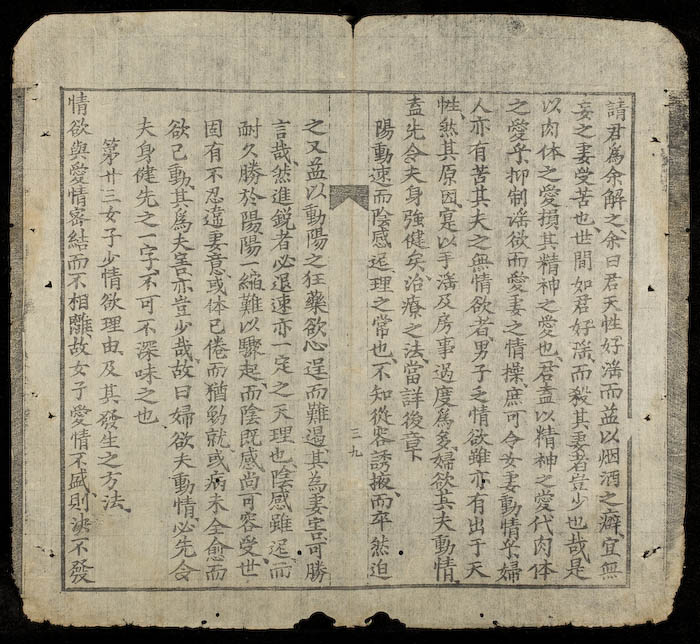 請君爲余解之余曰君天性好淫而益以烟酒之癖宜無
妄之妻受苦也世間如君好淫而殺其妻者豈少也哉是
以肉体之愛損其精神之愛也君盍以精神之愛代肉体
之愛乎抑制淫欲而愛妻之情操庶可令女妻動情乎婦
人亦有苦其夫之無情欲者男子乏情欲雖亦有出于天
性然其原因寔以手淫及房事過度爲多婦欲其夫動情
盍先令夫身強健矣治療之法當詳後章
陽動速而陰感遲理之常也不知從容誘掖而卒然迫
三九
之又益以動陽之狂藥欲心逞而難遏其為妻害可勝
言哉然進鋭者必退速亦一定之天理也陰感雖遲而
耐久勝於陽陽一縮難以驟起而陰既感尚可容受世
固有不忍違妻意或体已倦而猶勉就或病未全愈而
欲已動其爲夫害亦豈少哉故曰婦欲夫動情必先令
夫身健先之一字不可不深味之也
第廿三女子少情欲理由及其發生之方法
情欲與愛情密結而不相離故女子愛情不感則決不發